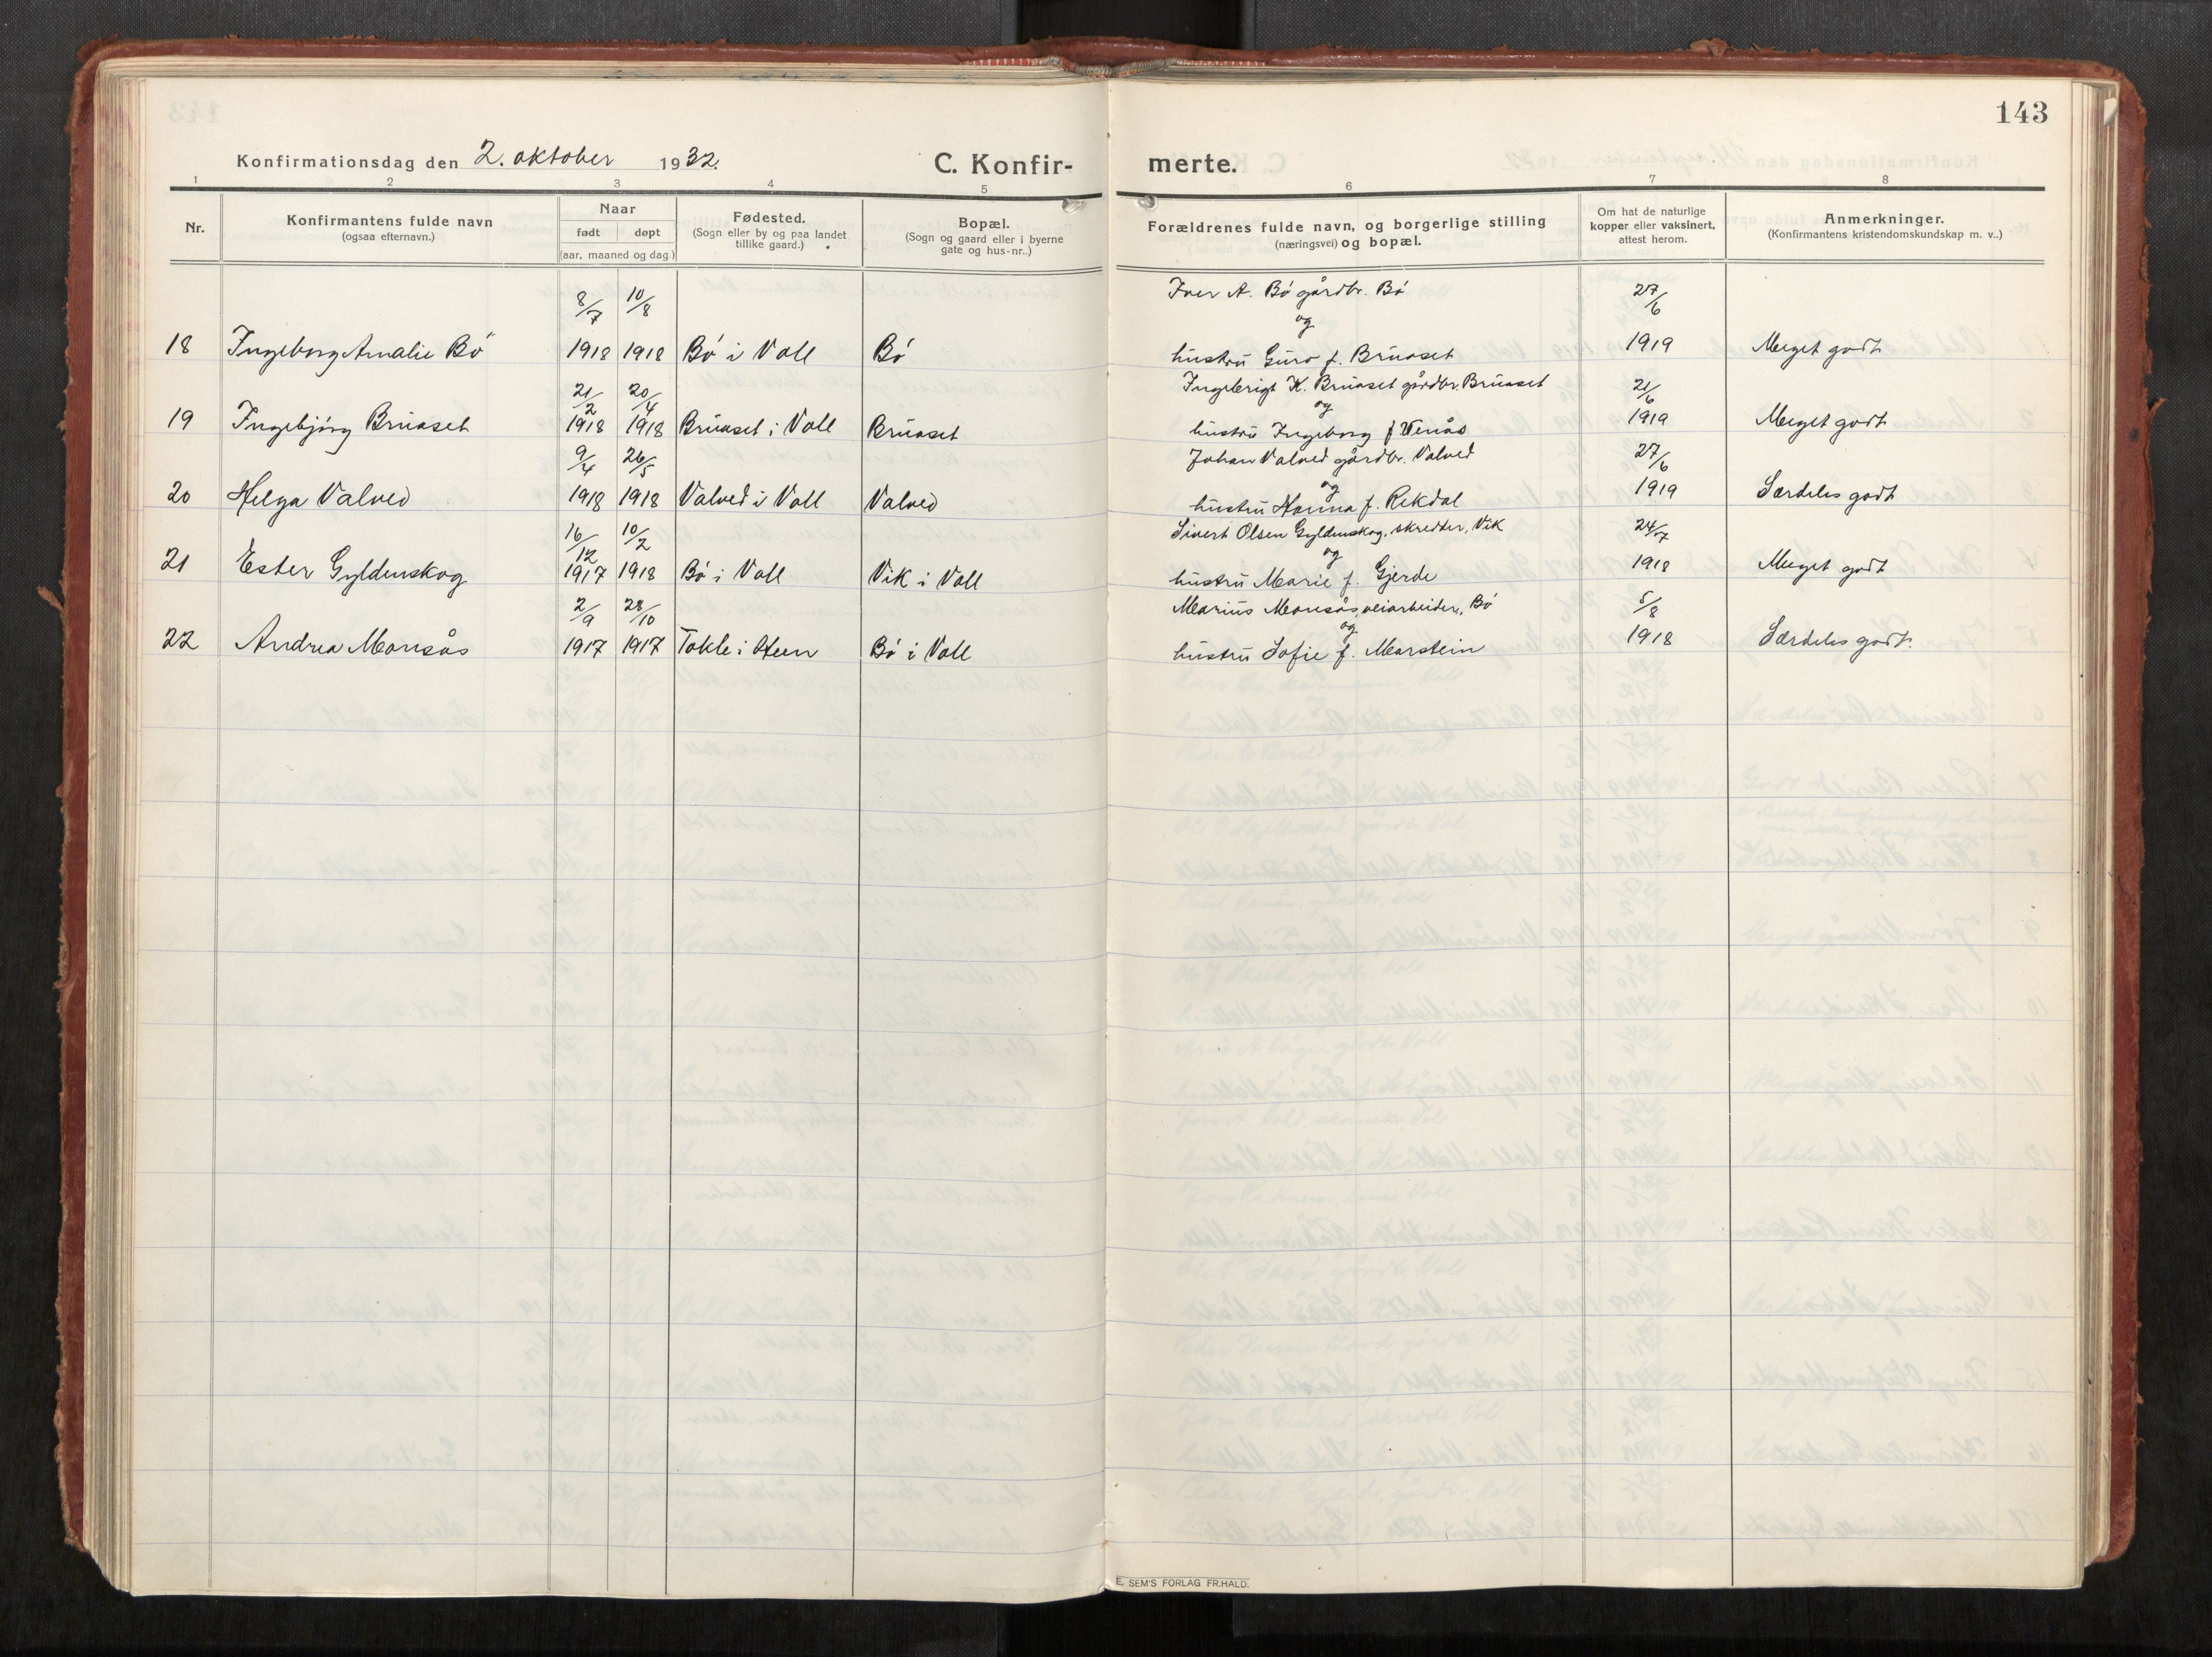 143
Konfirmationsdag den 2. oktober 1932.
C. Konfir-
merte.
1 2 3 4 5 6 7 8
Nr.
Konfirmantens fulde navn
(ogsaa efternavn.)
Naar
født døpt
(aar, maaned og dag)
Fødested.
(Sogn eller by og paa landet
tillike gaard.)
Bopæl.
(Sogn og gaard eller i byerne
gate og hus-nr..)
Forældrenes fulde navn, og borgerlige stilling
(næringsvei) og bopæl.
Om hat de naturlige
kopper eller vaksinert,
attest herom.
Anmerkninger.
(Konfirmantens kristendomskundskap m. v..)
8/7 10/8 Iver A. Bö gårdbr. Bö 27/6
og
18 Ingeborg Amalie Bö 1918 1918 Bö i Voll Bö hustru Guro f. Bruaset 1919 Meget godt
21/2 20/4 Ingebrigt K. Bruaset gårdbr. Bruaset 21/6
og
19 Ingebjörg Bruaset 1918 1918 Bruaset i Voll Bruaset hustru Ingeborg f. Venås 1919 Meget godt
9/4 26/5 Johan Valved gårdbr. Valved 27/6
og
20 Helga Valved 1918 1918 Valved i Voll Valved hustru Hanna f. Rekdal 1919 Særdeles godt
16/12 10/2 Sivert Olsen Gyldenskog, skredder, Vik 24/7
og
21 Ester Gyldenskog 1917 1918 Bö i Voll Vik i Voll hustru Marie f. Gjerde 1918 Meget godt
2/9 28/10 Marius Monsås, veiarbeider, Bö 5/8
og
22 Andrea Monsås 1917 1917 Tokle i Heen Bö i Voll hustru Sofie f. Marstein 1918 Særdeles godt.
E. SEM'S FORLAG FR.HALD.